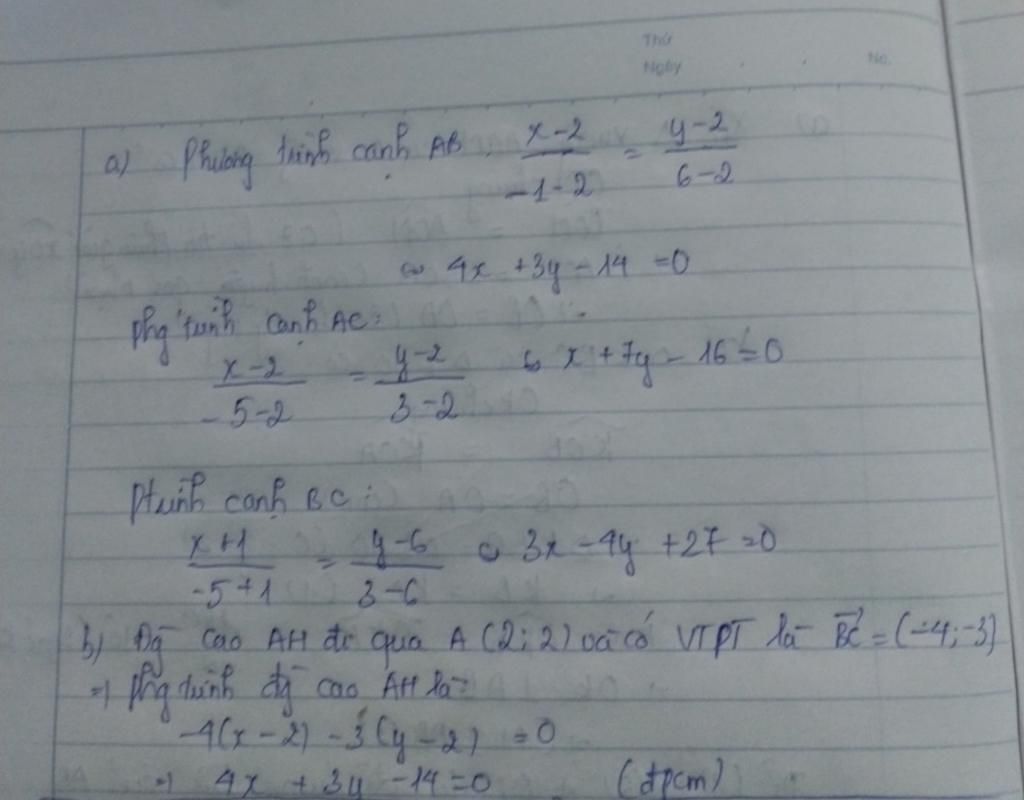 Thứ
Ngày No.
a) Phương trình cạnh AB : x-2 / -1-2 = y-2 / 6-2
⇔ 4x + 3y - 14 = 0
phg trình cạnh AC:
x-2 / -5-2 = y-2 / 3-2 ⇔ x + 7y - 16 = 0
Ptrình cạnh BC :
x+1 / -5+1 = y-6 / 3-6 ⇔ 3x - 4y + 27 = 0
b) Đg cao AH đi qua A (2; 2) và có VTPT là BC = (-4; -3)
=) phg trình đg cao AH là:
-4(x-2) - 3(y-2) = 0
=) 4x + 3y - 14 = 0 (đpcm)